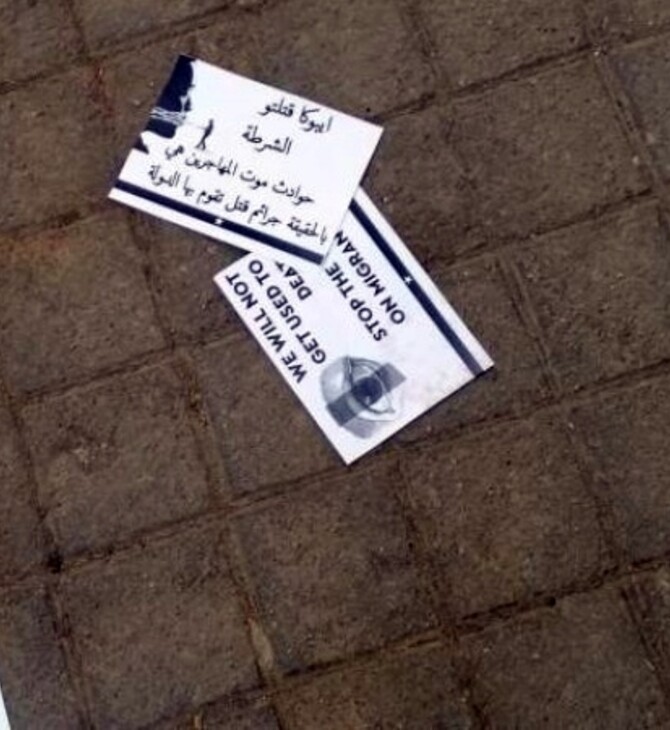 ايبوكا قتلتو
الشرطة
حوادث موت المهاجرين هي
بالحقيقة جرائم قتل تقوم بها الدولة
WE WILL NOT
GET USED TO
STOP THE
ON MIGRAN